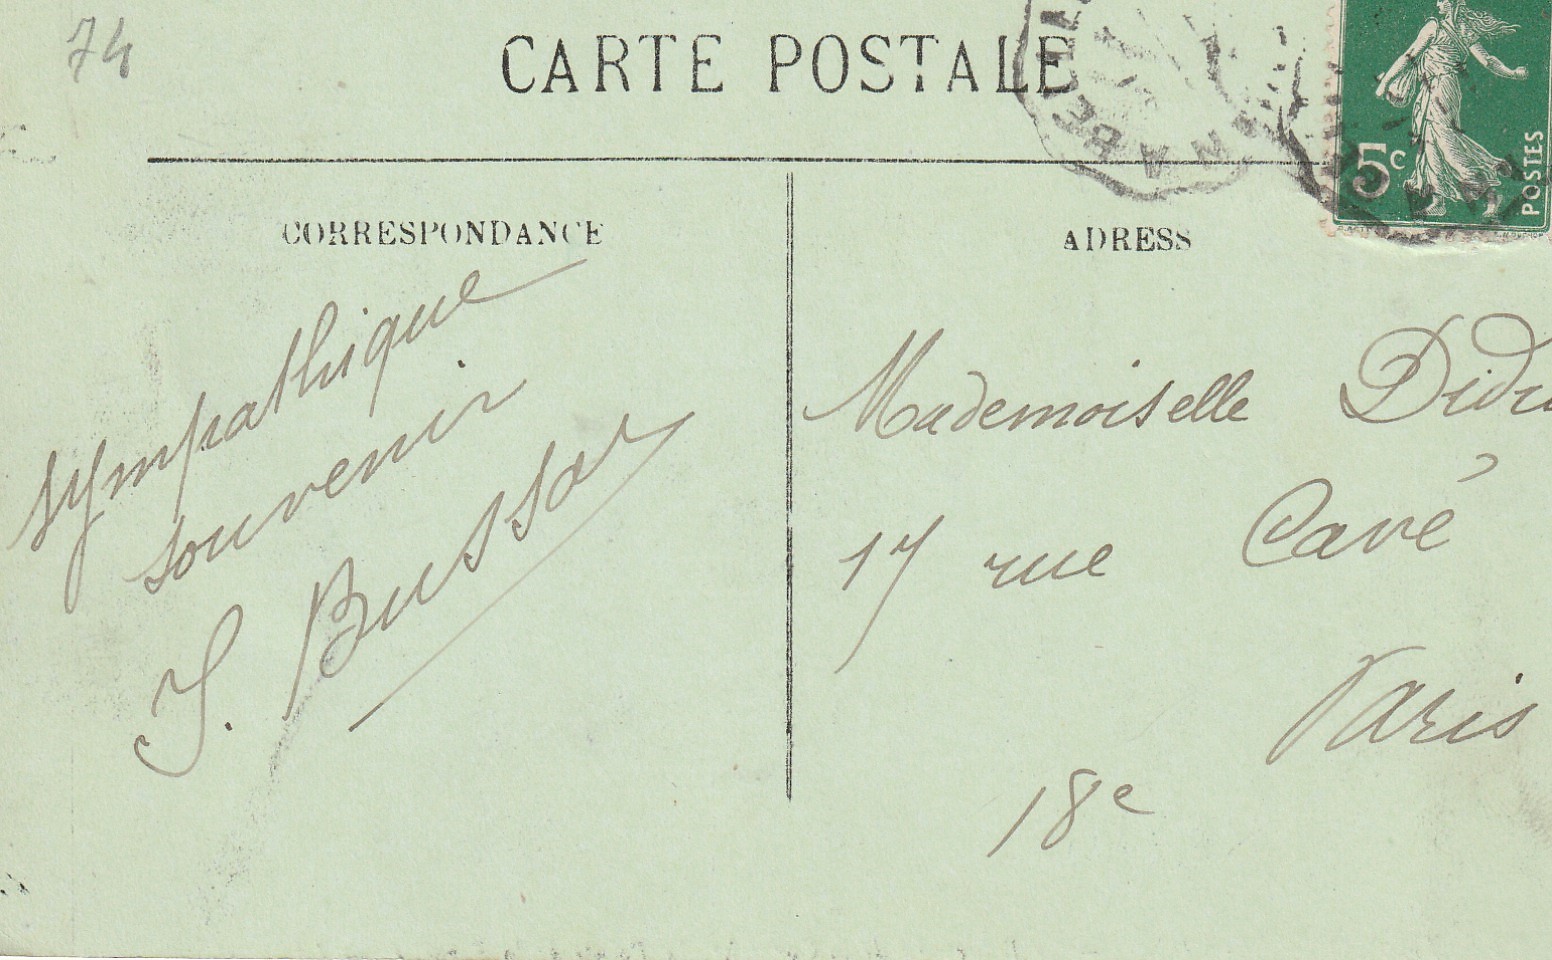 74
CARTE POSTALE
5c
POSTES
CORRESPONDANCE
sympathique
souvenir
J. Bussod
ADRESS
Mademoiselle
17 rue Cavé
Paris
18e